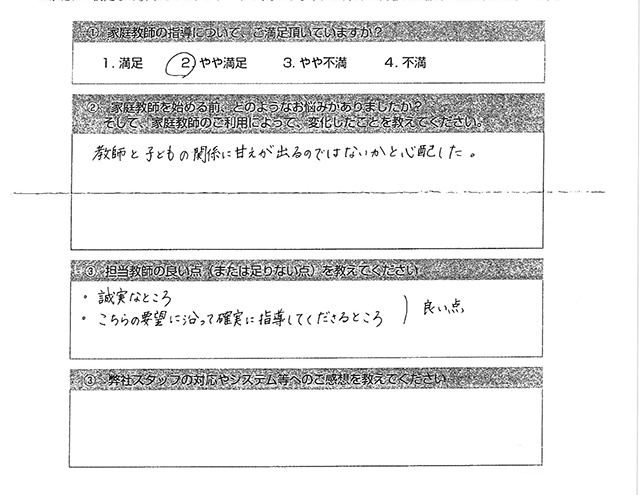 ① 家庭教師の指導について、ご満足頂いていますか?
1. 満足 2. やや満足 3. やや不満 4. 不満
② 家庭教師を始める前、どのようなお悩みがありましたか?
そして、家庭教師のご利用によって、変化したことを教えてください。
教師と子どもの関係に甘えが出るのではないかと心配した。
③ 担当教師の良い点(または足りない点)を教えてください
・ 誠実なところ
・ こちらの要望に沿って確実に指導してくださるところ ) 良い点
③ 弊社スタッフの対応やシステム等へのご感想を教えてください